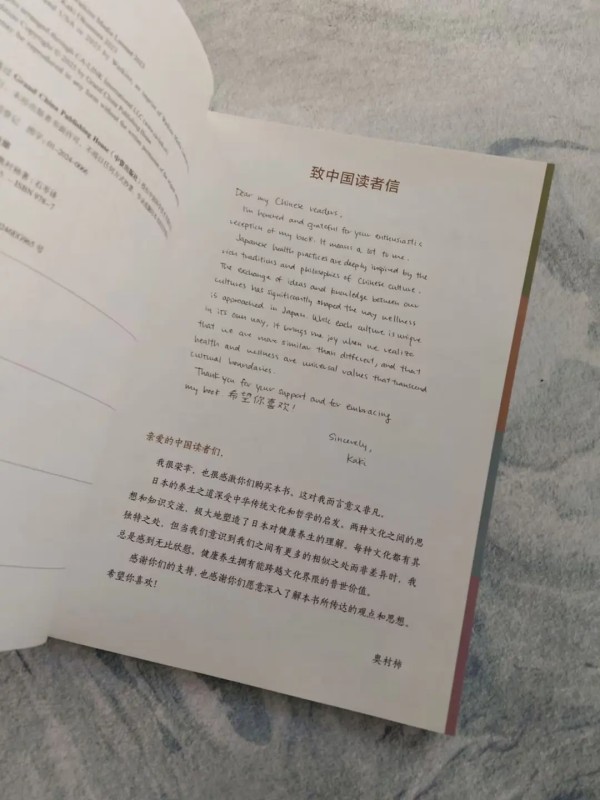 Kaki Okumura 2023
Grand China Publishing House
ISBN 978-7
致中国读者信
Dear my Chinese readers,
I'm honored and grateful for your enthusiastic
reception of my book. It means a lot to me.
Japanese health practices are deeply inspired by the
rich traditions and philosophies of Chinese culture.
The exchange of ideas and knowledge between our
cultures has significantly shaped the way wellness
is approached in Japan. While each culture is unique
in its own way, it brings me joy when we realize
that we are more similar than different, and that
health and wellness are universal values that transcend
cultural boundaries.
Thank you for your support and for embracing
my book 希望你喜欢！
Sincerely,
Kaki
亲爱的中国读者们，
我很荣幸，也很感激你们购买本书，这对我而言意义非凡。
日本的养生之道深受中华传统文化和哲学的启发，两种文化之间的思
想和知识交流，极大地塑造了日本对健康养生的理解。每种文化都有其
独特之处，但当我们意识到我们之间有更多的相似之处而非差异时，我
总是感到无比欣慰。健康养生拥有能跨越文化界限的普世价值。
感谢你们的支持，也感谢你们愿意深入了解本书所传达的观点和思想。
希望你喜欢！
奥村柿